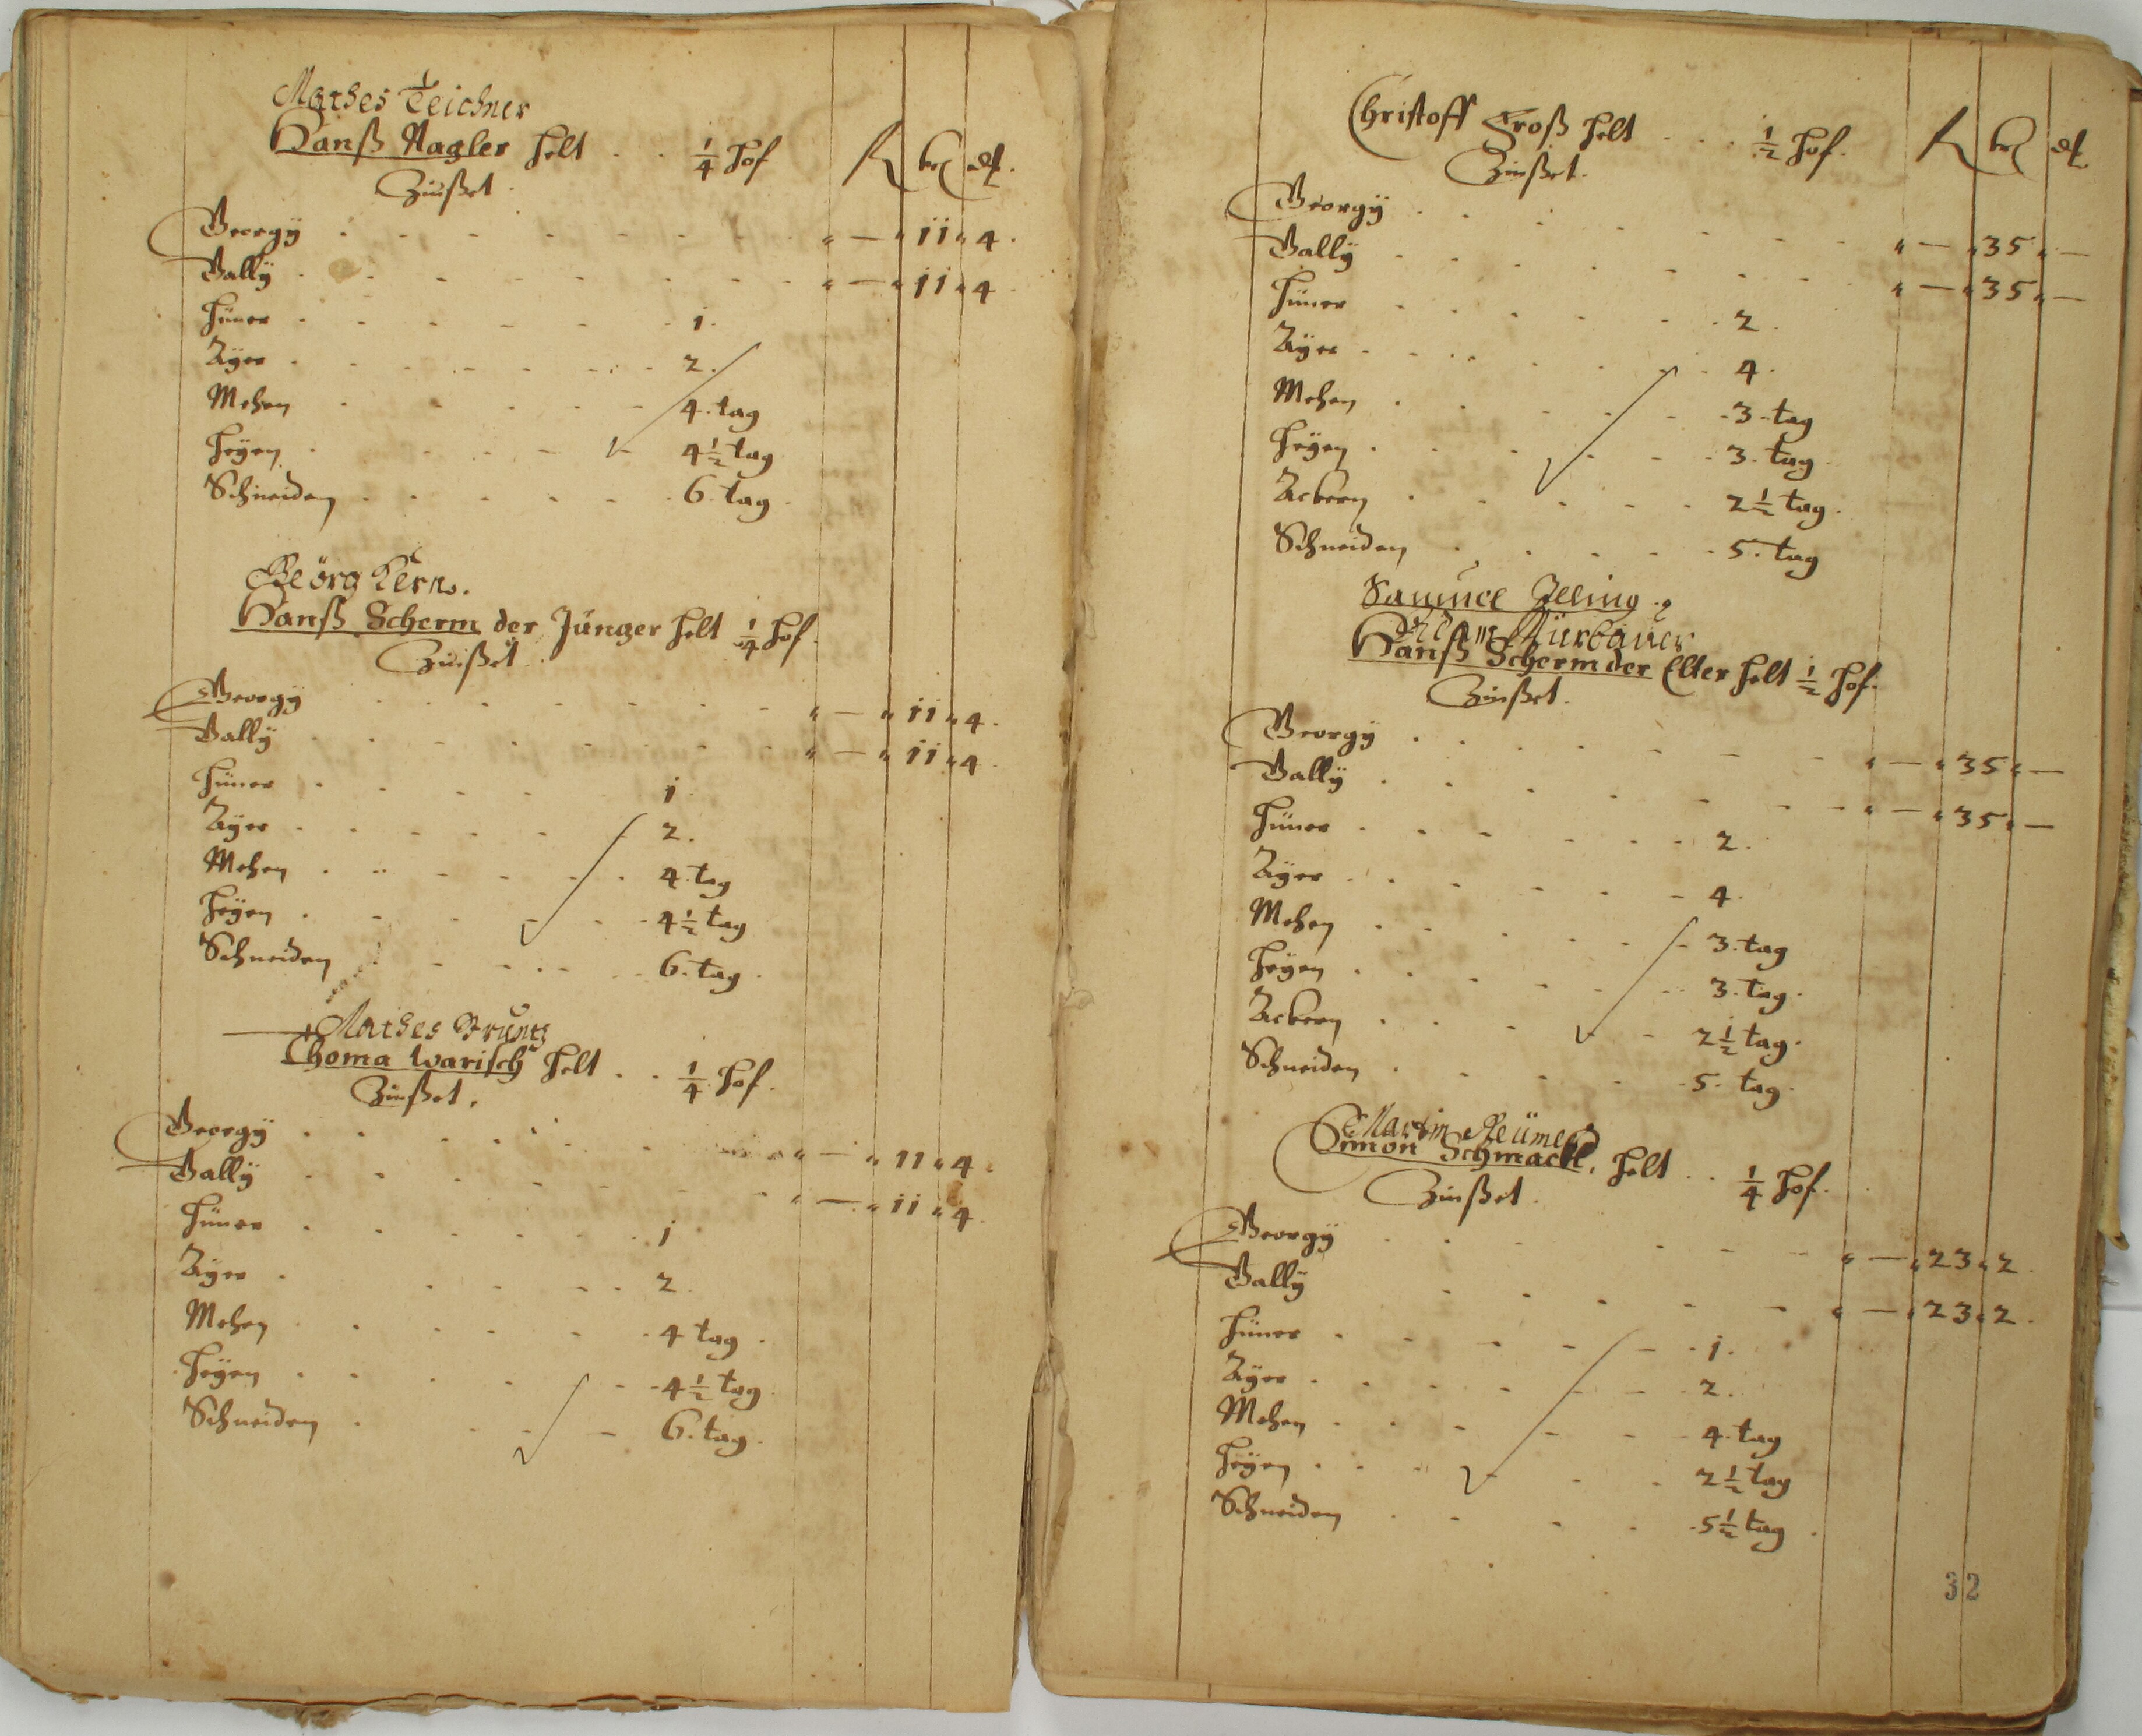 Mathes Teichner
Hanß Nagler helt . . 1/4 hof fl kr ₰.
Zinßet.
Georgÿ . . . . . . . „ — „ 11 „ 4.
Gallÿ . . . . . . . „ — „ 11 „ 4
Hüner . . . . . . 1.
Aÿer . . . . . . 2.
Mehen . . . . . 4. tag
Heÿen . . . . . 4 1/2 tag
Schneiden . . . . . 6. tag
Geörg Kern.
Hanß Scherm der Jünger helt 1/4 hof.
Zinßet
Georgÿ . . . . . . . „ — „ 11 „ 4.
Gallÿ . . . . . . . „ — „ 11 „ 4.
Hüner . . . . . 1
Aÿer . . . . . 2.
Mehen . . . . . 4. tag
Heÿen . . . . . 4 1/2 tag
Schneiden . . . . 6. tag.
Mathes
Thoma Warisch helt . . 1/4 hof.
Zinßet.
Georgÿ . . . . . . . „ — „ 11 „ 4.
Gallÿ . . . . . . . „ — „ 11 „ 4.
Hüner . . . . . 1
Aÿer . . . . . 2.
Mehen . . . . . 4 tag.
Heÿen . . . . . 4 1/2 tag.
Schneiden . . . . 6. tag.
Christoff Groß helt . . . 1/2 hof. fl kr ₰
Zinßet.
Georgÿ . . . . . . . „ — „ 35 „ —
Gallÿ . . . . . . . „ — „ 35 „ —
Hüner . . . . . . 2.
Aÿer . . . . . . 4.
Mehen . . . . . 3. tag
Heÿen . . . . . 3. tag.
Ackern . . . . . 2 1/2 tag.
Schneiden . . . . . 5. tag
Samuel
Adam
Hanß Scherm der Elter helt 1/2 hof.
Zinßet.
Georgÿ . . . . . . . „ — „ 35 „ —
Gallÿ . . . . . . . „ — „ 35 „ —
Hüner . . . . . . 2.
Aÿer . . . . . . 4.
Mehen . . . . . 3. tag
Heÿen . . . . . 3. tag.
Ackern . . . . . 2 1/2 tag.
Schneiden . . . . . 5. tag.
Martin
Simon Schmackl, helt . . 1/4 hof.
Zinßet.
Georgÿ . . . . . . „ — „ 23 „ 2.
Gallÿ . . . . . . „ — „ 23 „ 2.
Hüner . . . . . . 1.
Aÿer . . . . . . 2.
Mehen . . . . . 4. tag
Heÿen . . . . . 2 1/2 tag
Schneiden . . . . 5 1/2 tag.
32